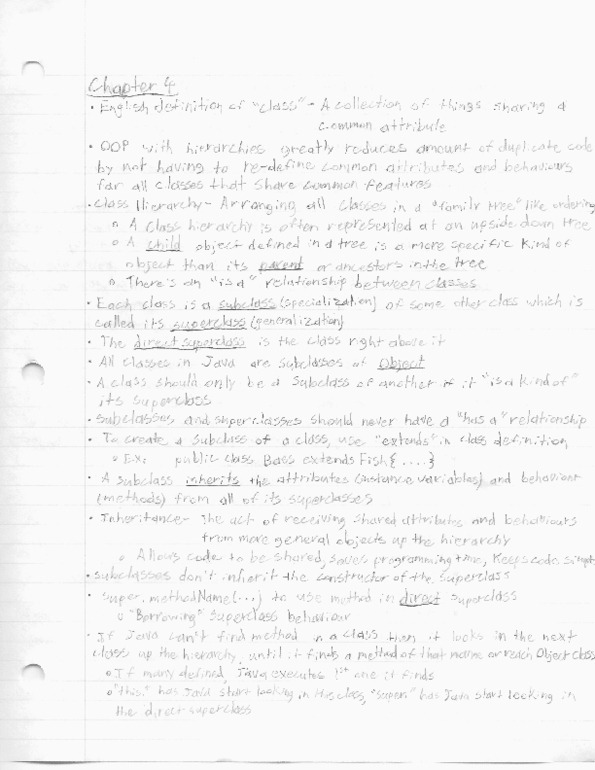 Chapter 4
• English definition of "class" - A collection of things sharing a
common attribute
• OOP with hierarchies greatly reduces amount of duplicate code
by not having to re-define common attributes and behaviours
for all classes that share common features
• Class Hierarchy - Arranging all classes in a "family tree" like ordering
o A class hierarchy is often represented at an upside down tree
o A child object defined in a tree is a more specific kind of
object than its parent or ancestors in the tree
o There's an "is a" relationship between classes
• Each class is a subclass (specialization) of some other class which is
called its superclass (generalization)
• The direct superclass is the class right above it
• All classes in Java are subclasses of Object
• A class should only be a subclass of another if it "is a kind of"
its superclass
• Subclasses and superclasses should never have a "has a" relationship
• To create a subclass of a class, use "extends" in class definition
o Ex: public class Bass extends Fish{ ....}
• A subclass inherits the attributes (instance variables) and behaviour
(methods) from all of its superclasses
• Inheritance - The act of receiving shared attributes and behaviours
from more general objects up the hierarchy
o Allows code to be shared, saves programming time, keeps code simple
• subclasses don't inherit the constructor of the superclass
• super.methodName(...) to use method in direct superclass
o "Borrowing" superclass behaviour
• If Java can't find method in a class then it looks in the next
class up the hierarchy, until it finds a method of that name or reach Object class
o If many defined, Java executes 1st one it finds
o "this." has Java start looking in this class, "super." has Java start looking in
the direct superclass